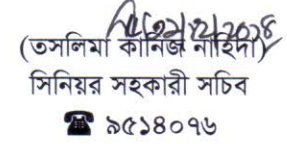 (তসলিমা কানিজ নাহিদা)
সিনিয়র সহকারী সচিব
☎ ৯৫১৪০৭৬